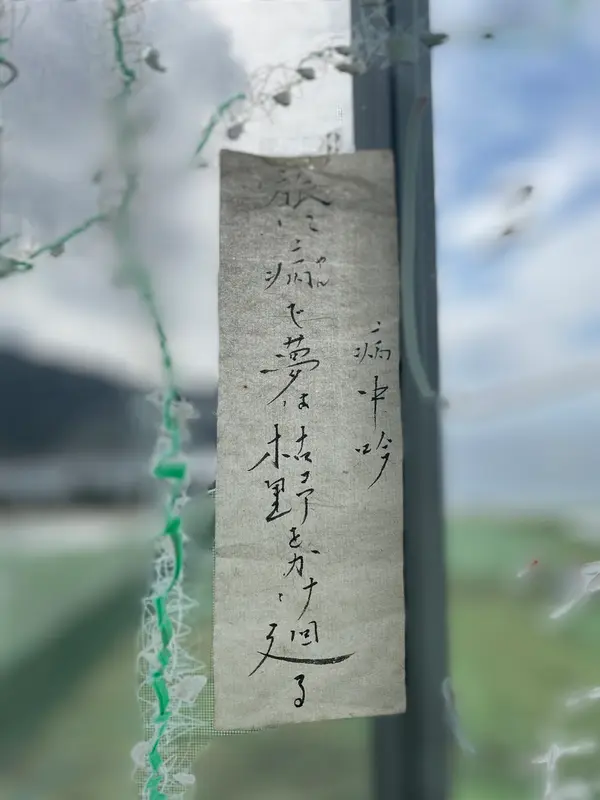 病中吟
旅に病で夢は枯野をかけ廻る
やん